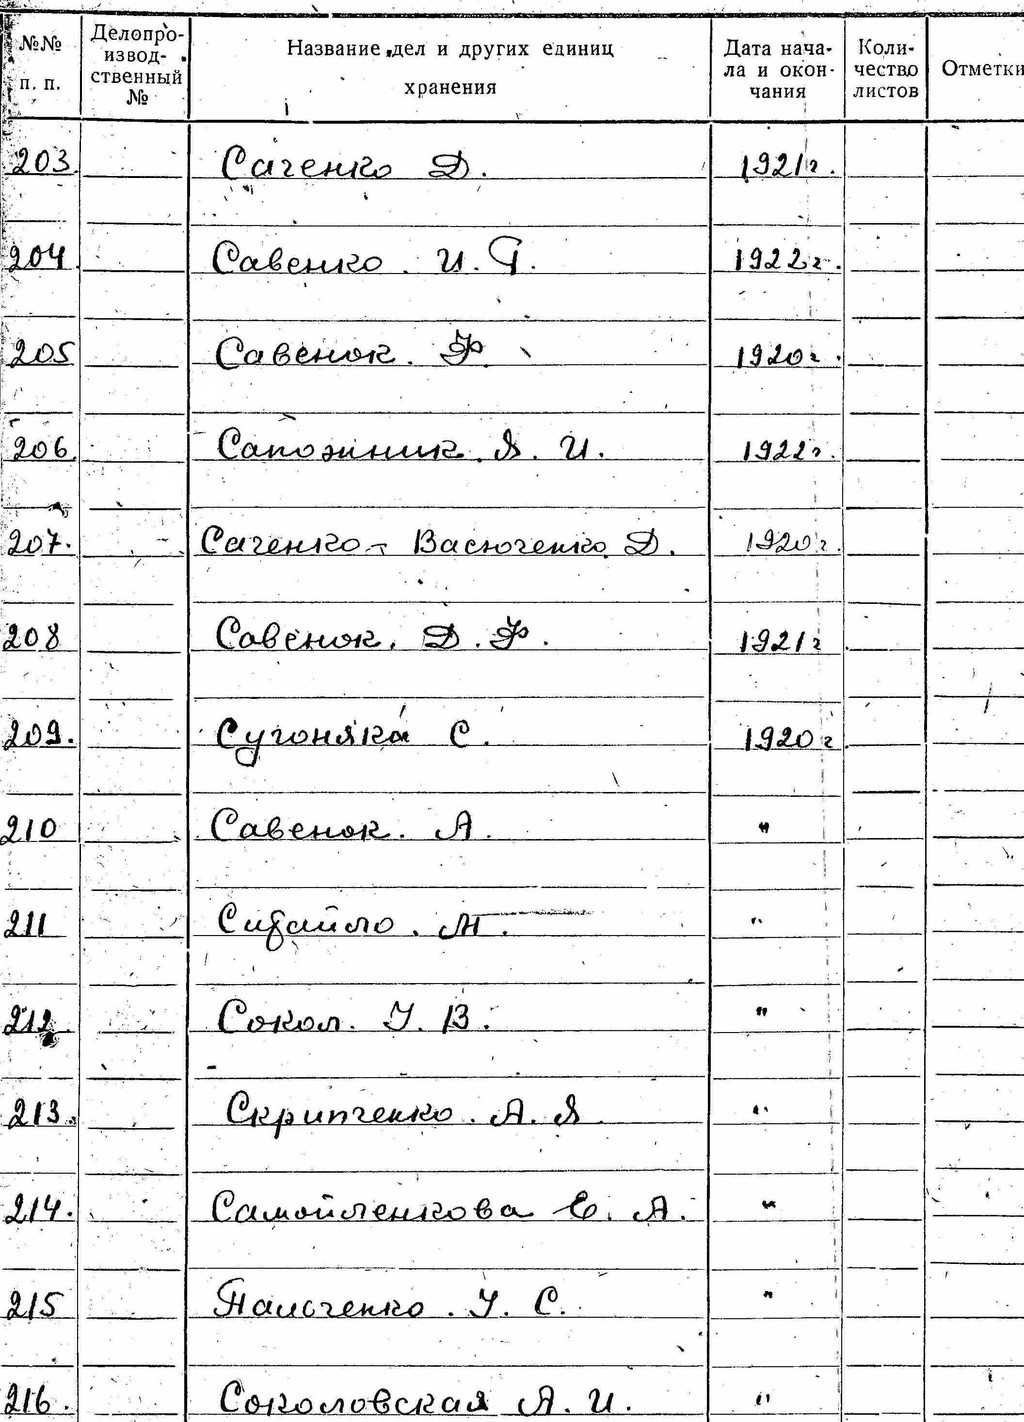 №№ п. п. Делопро- извод- ственный № Название дел и других единиц хранения Дата нача- ла и окон- чания Коли- чество листов Отметки
203 Саченко Д. 1921г.
204 Савенко. И. П. 1922г.
205 Савенок. Ф. 1920г.
206 Сапожник. Я. И. 1922г.
207. Саченко-Васюченко Д. 1920г.
208 Савенок. Д. Ф. 1921г
209. Сугоняка С. 1920г
210 Савенок. А. "
211 М. "
212 Сокол. У. В. "
213. Скрипченко. А. Я. "
214. Самойленкова Е. А. "
215 Пальченко. У. С. "
216. Соколовская А. И. "